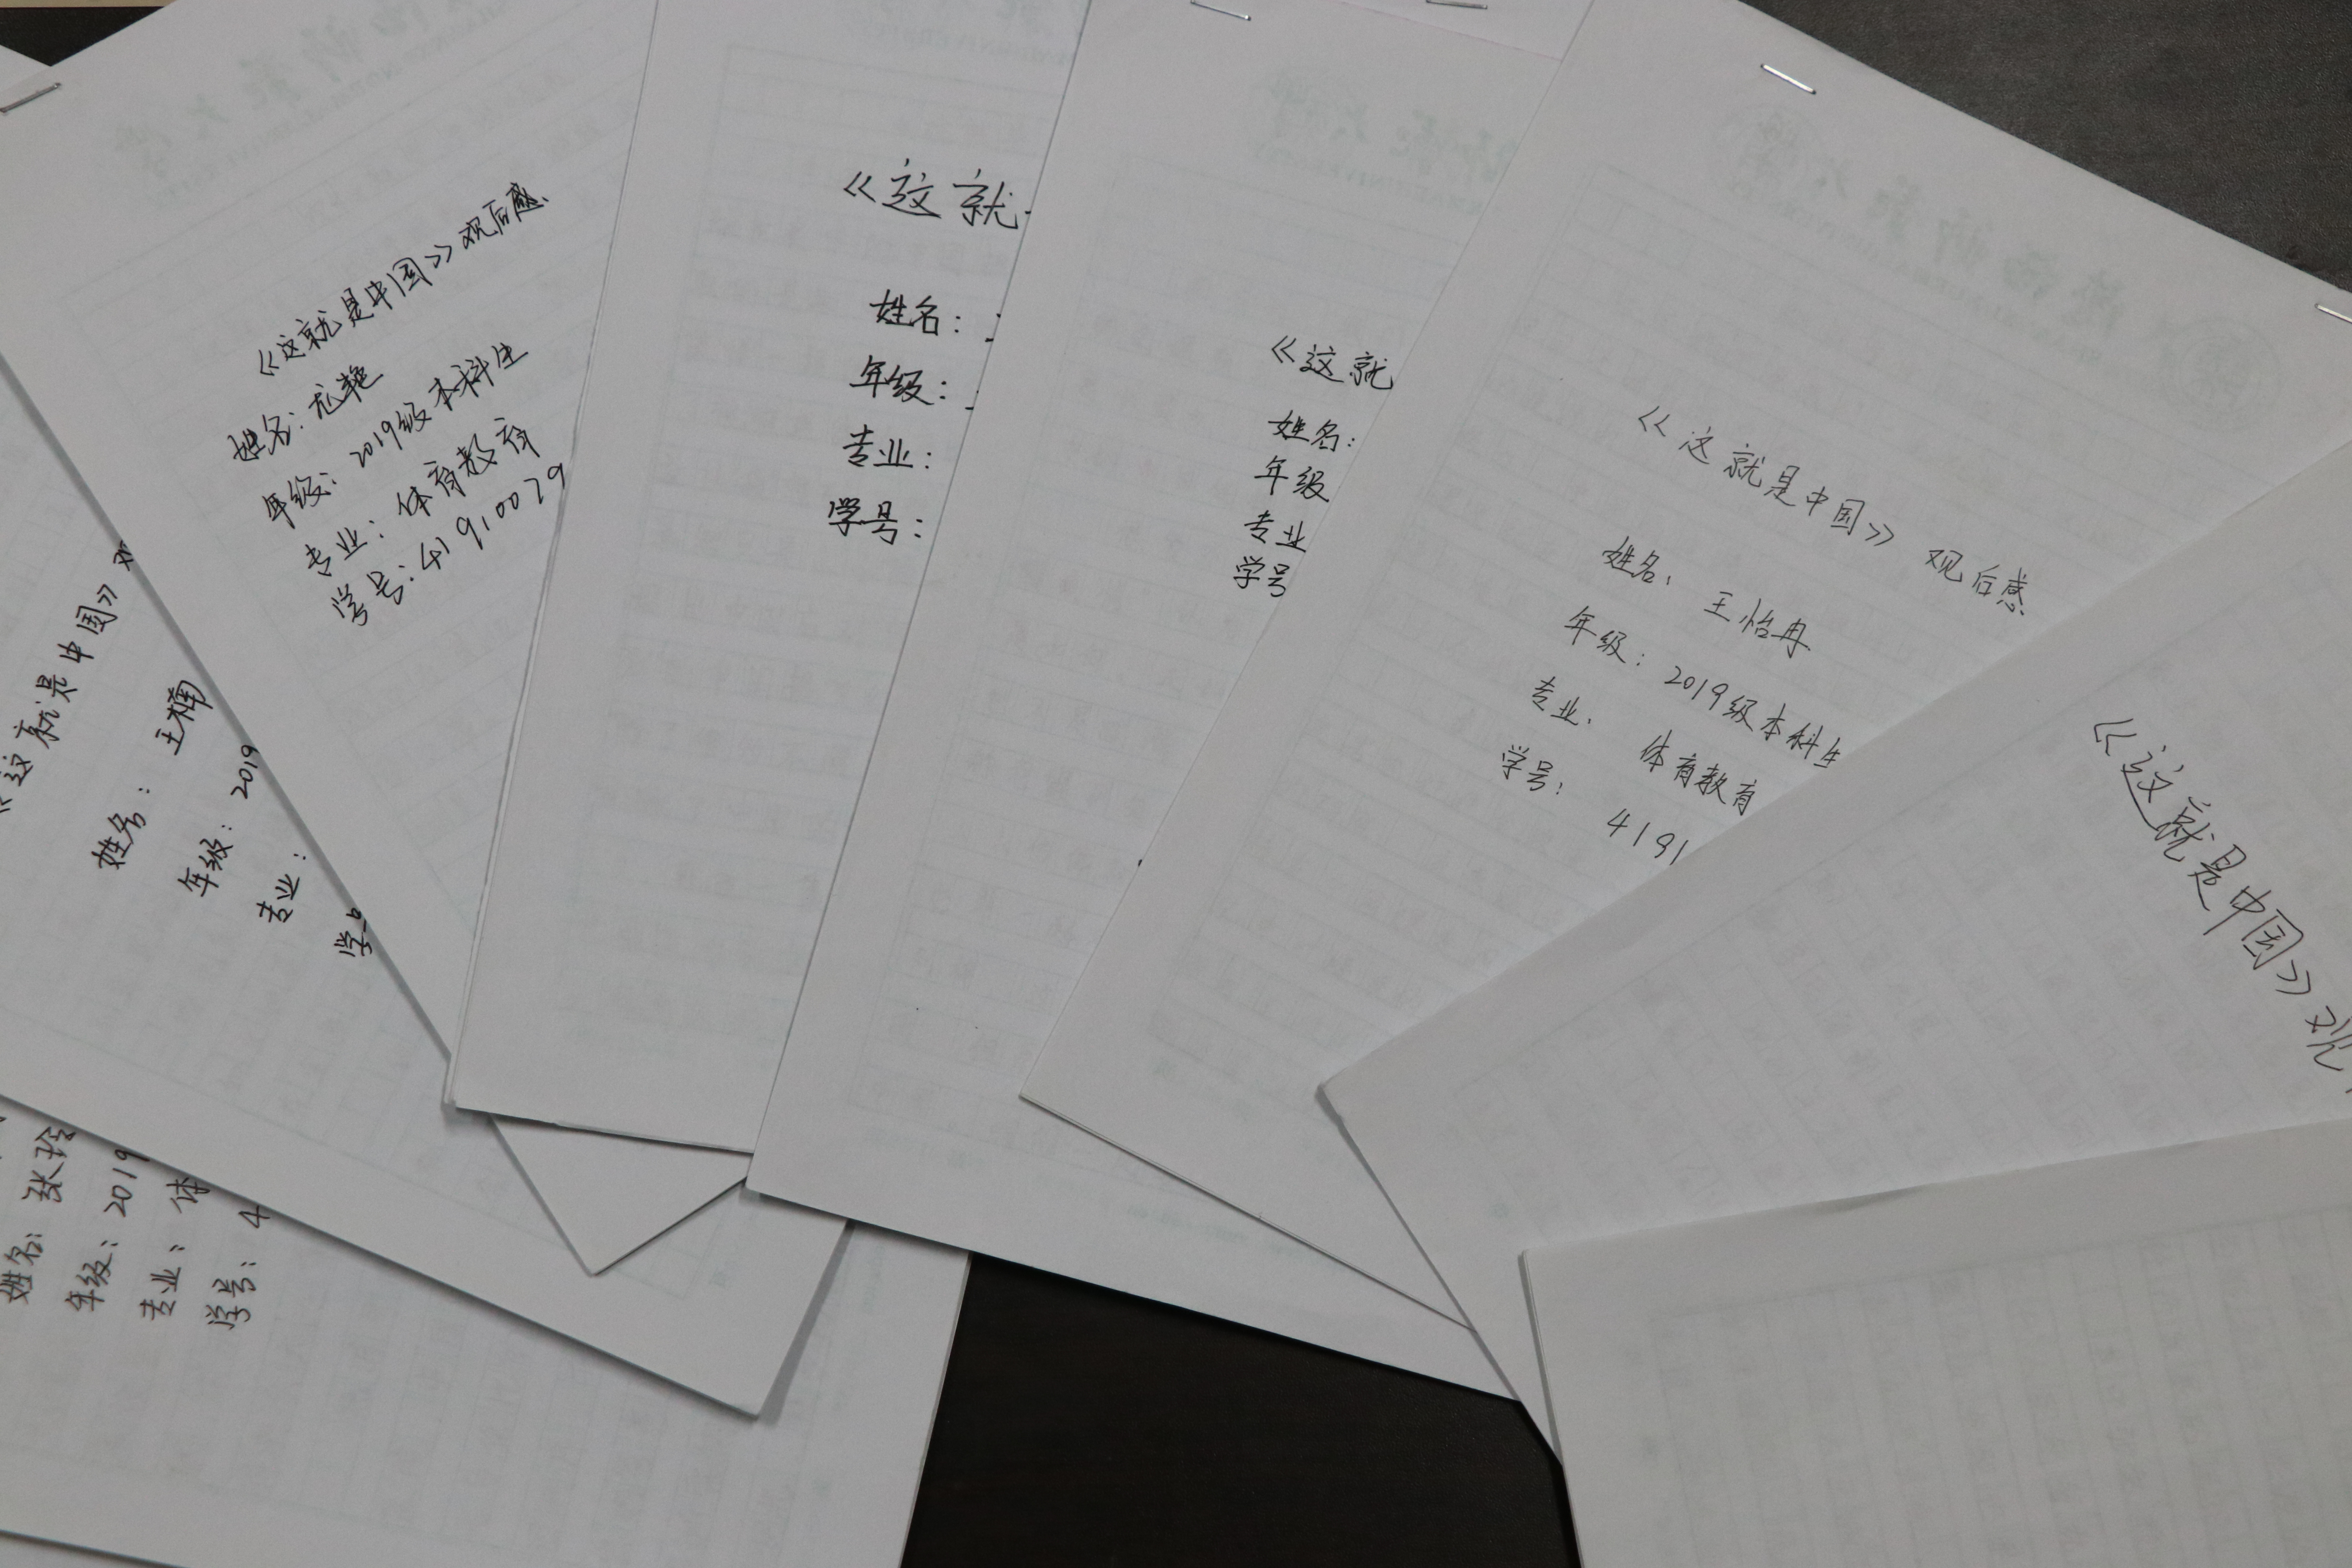 《这就是中国》观后感
姓名：尤艳
年级：2019级本科生
专业：体育教育
学号：41910079
《这就
姓名：
年级：
专业：
学号：
《这就
姓名：
年级
专业
学号
《这就是中国》观后感
姓名：王怡冉
年级：2019级本科生
专业：体育教育
学号：4191
《这就是中国》观
《这就是中国》
姓名：王楠
年级：2019
专业：
学
姓名：张玲
年级：2019
专业：体
学号：4